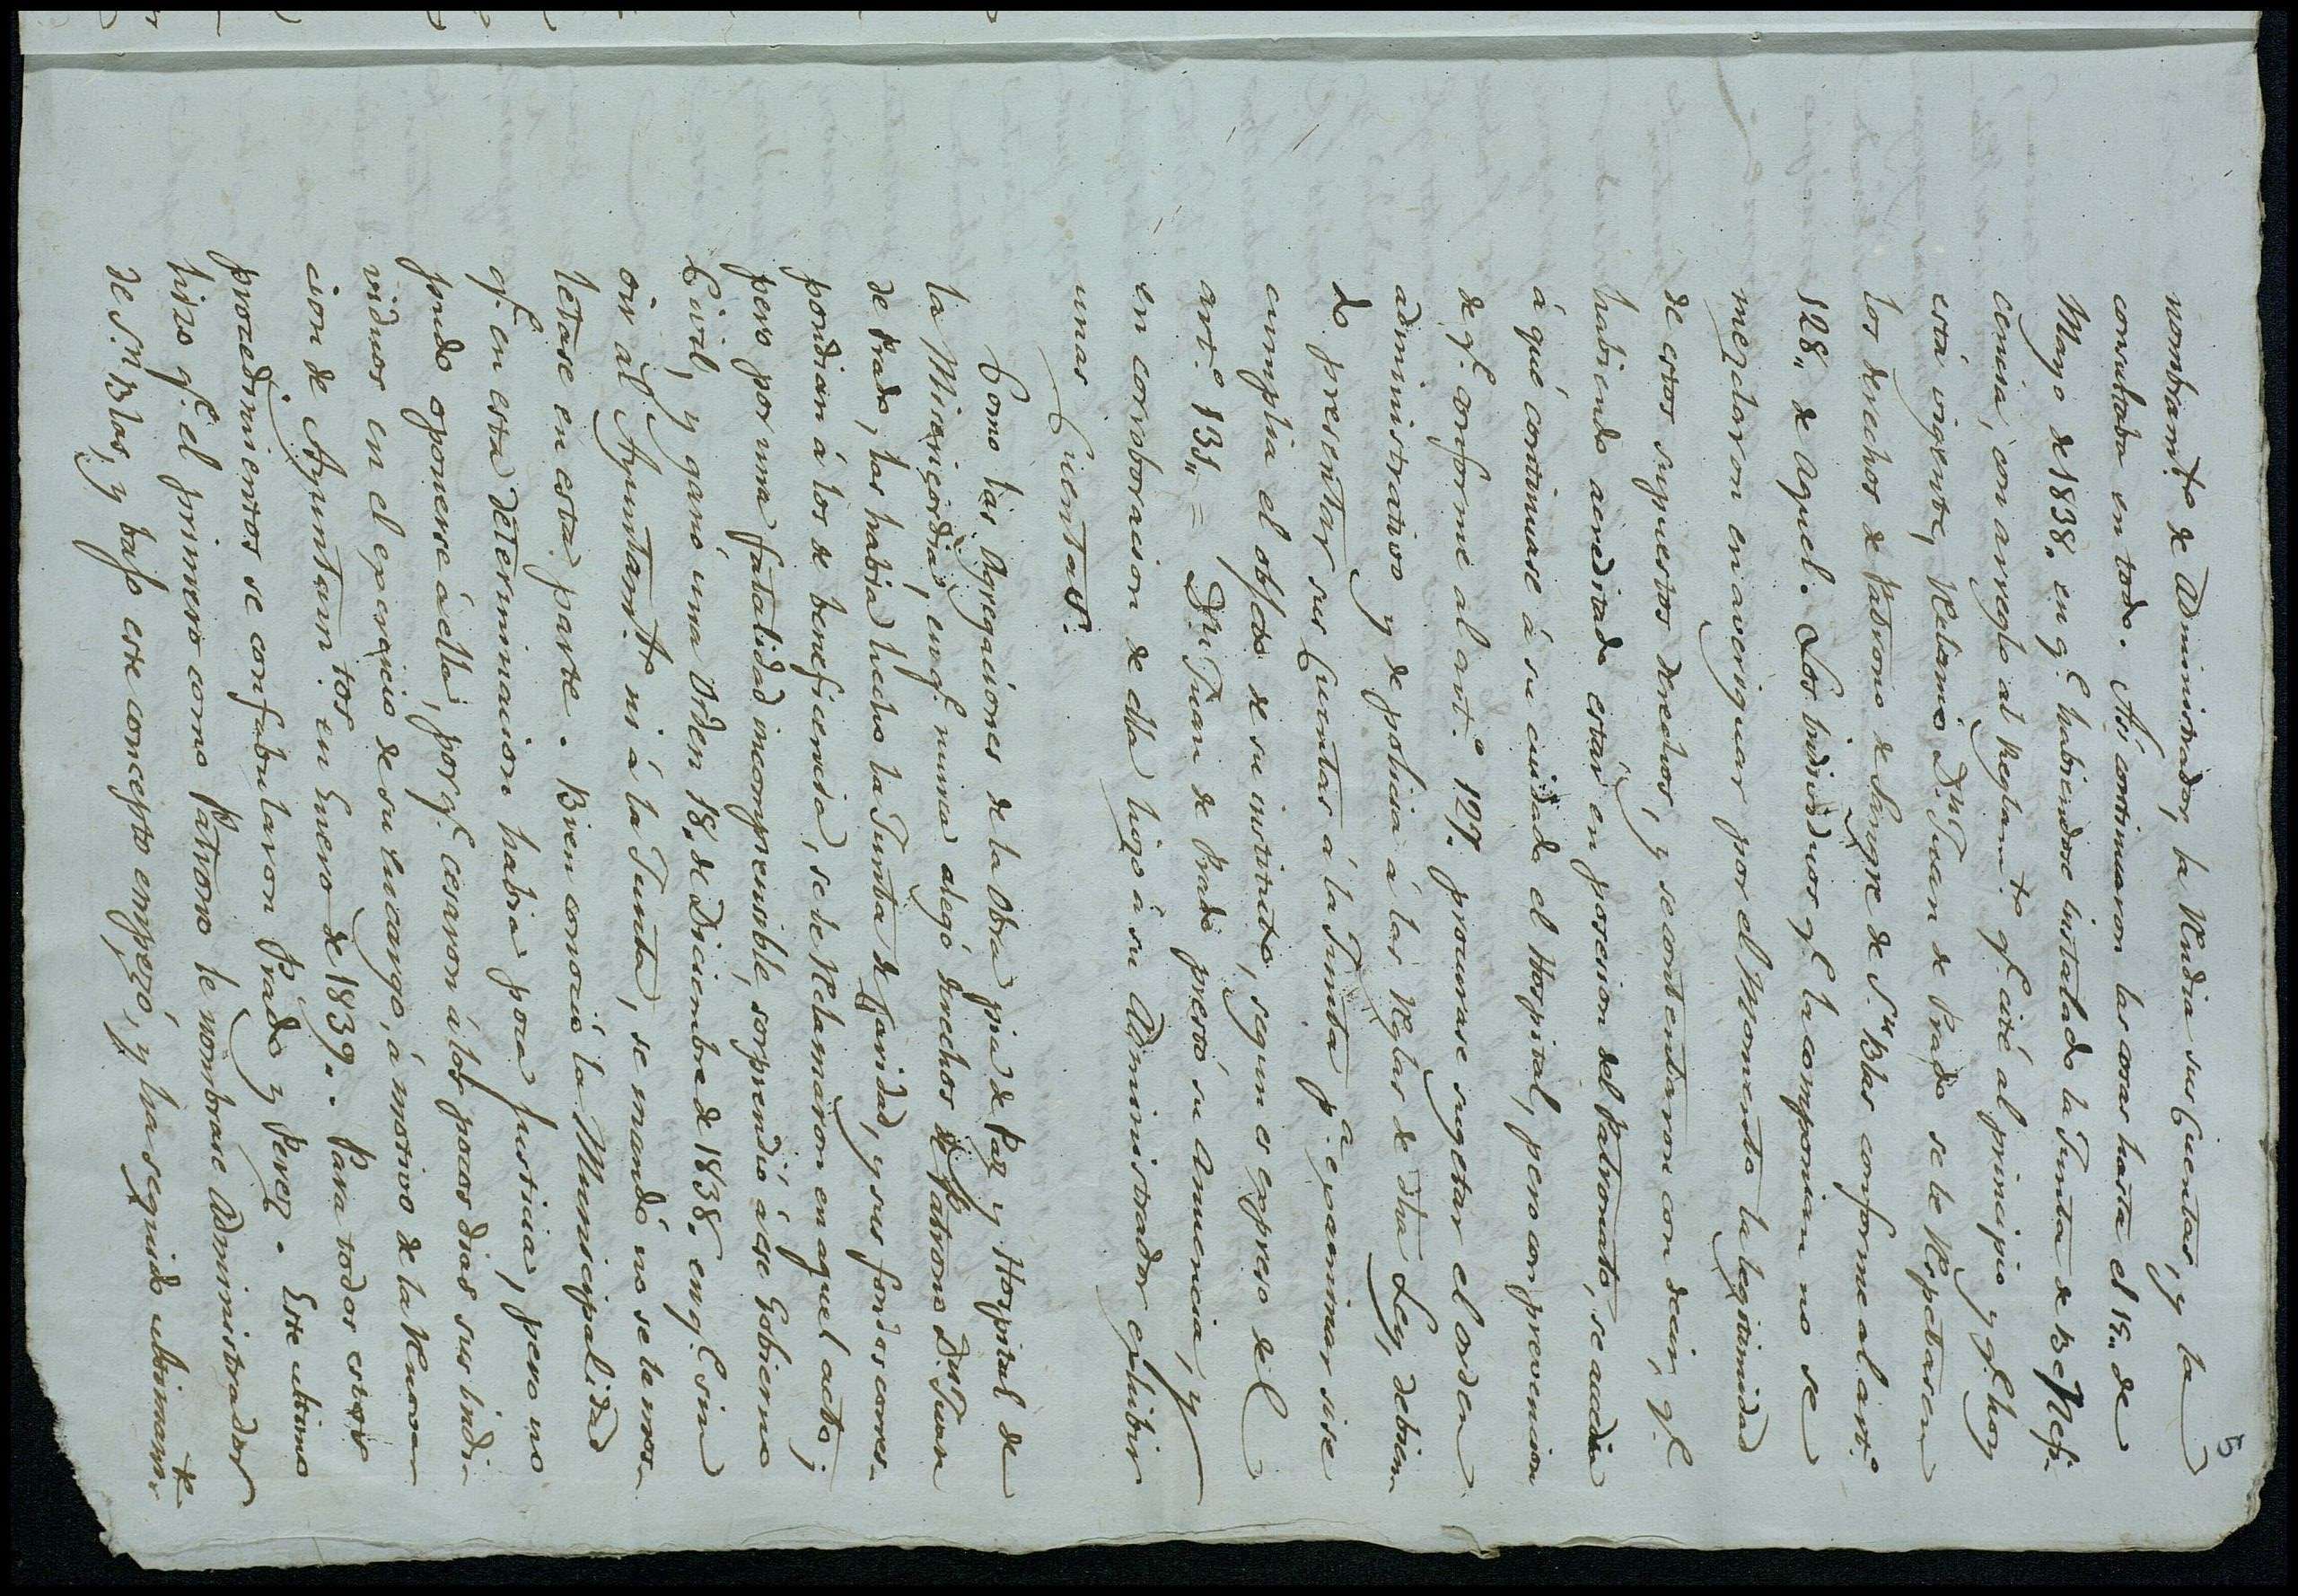 5
nombram.to de Administrador, la rendia sus Cuentas, y la
consultaba en todo. Asi continuaron las cosas hasta el 19,, de
Mayo de 1838. en q.e habiendose instalado la Junta de Benefi-
cencia, con arreglo al Reglam.to q.e cité al principio y q.e hoy
está vigente, reclamó D.n Juan de Prado se le respetasen
los derechos de Patrono de Sangre de S.n Blas conforme al art.o
128,, de aquel. Los individuos q.e la componian no se
mezclaron en averiguar por el Momento la legitimidad
de estos supuestos derechos, y se contentaron con decir, q.e
habiendo acreditado estar en posesion del Patronato, se accedia
á qué continuase á su cuidado el Hospital, pero con prevencion
de q.e conforme al art.o 129. procurase sugetar el orden
administrativo y de policia á las reglas de dha Ley, debien-
do presentar sus Cuentas á la Junta p.a examinar si se
cumplia el objeto de su instituto, segun es expreso del
art.o 131,, = D.n Juan de Prado prestó su anuencia, y
en corroboracion de ella hizo á su Administrador exhibir
unas Cuentas.
Como las agregaciones de la Obra pia de Paz y Hospital de
la Misericordia, en q.e nunca alegó derechos de Patrono D.n Juan
de Prado, las habia hecho la Junta de Caridad, y sus fondos corres-
pondian á los de beneficencia, se le reclamaron en aquel acto;
pero por una fatalidad incomprensible, sorprendió á ese Gobierno
Civil, y ganó una Orden 18,, de Diciembre de 1838. en q.e sin
oir al Ayuntam.to ni á la Junta, se mandó no se la moles-
tase en esta parte. Bien conoció la Municipalidad
q.e en esta determinacion habia poca justicia, pero no
pudo oponerse á ella, por q.e cesaron á los pocos dias sus indi-
viduos en el egercicio de su encargo, á motivo de la renova-
cion de Ayuntam.tos en Enero de 1839. Para todos estos
procedimientos se confabularon Prado y Perez. Este ultimo
hizo q.e el primero como Patrono le nombrase Administrador
de S.n Blas, y bajo este concepto empezó, y ha seguido ultimam.te